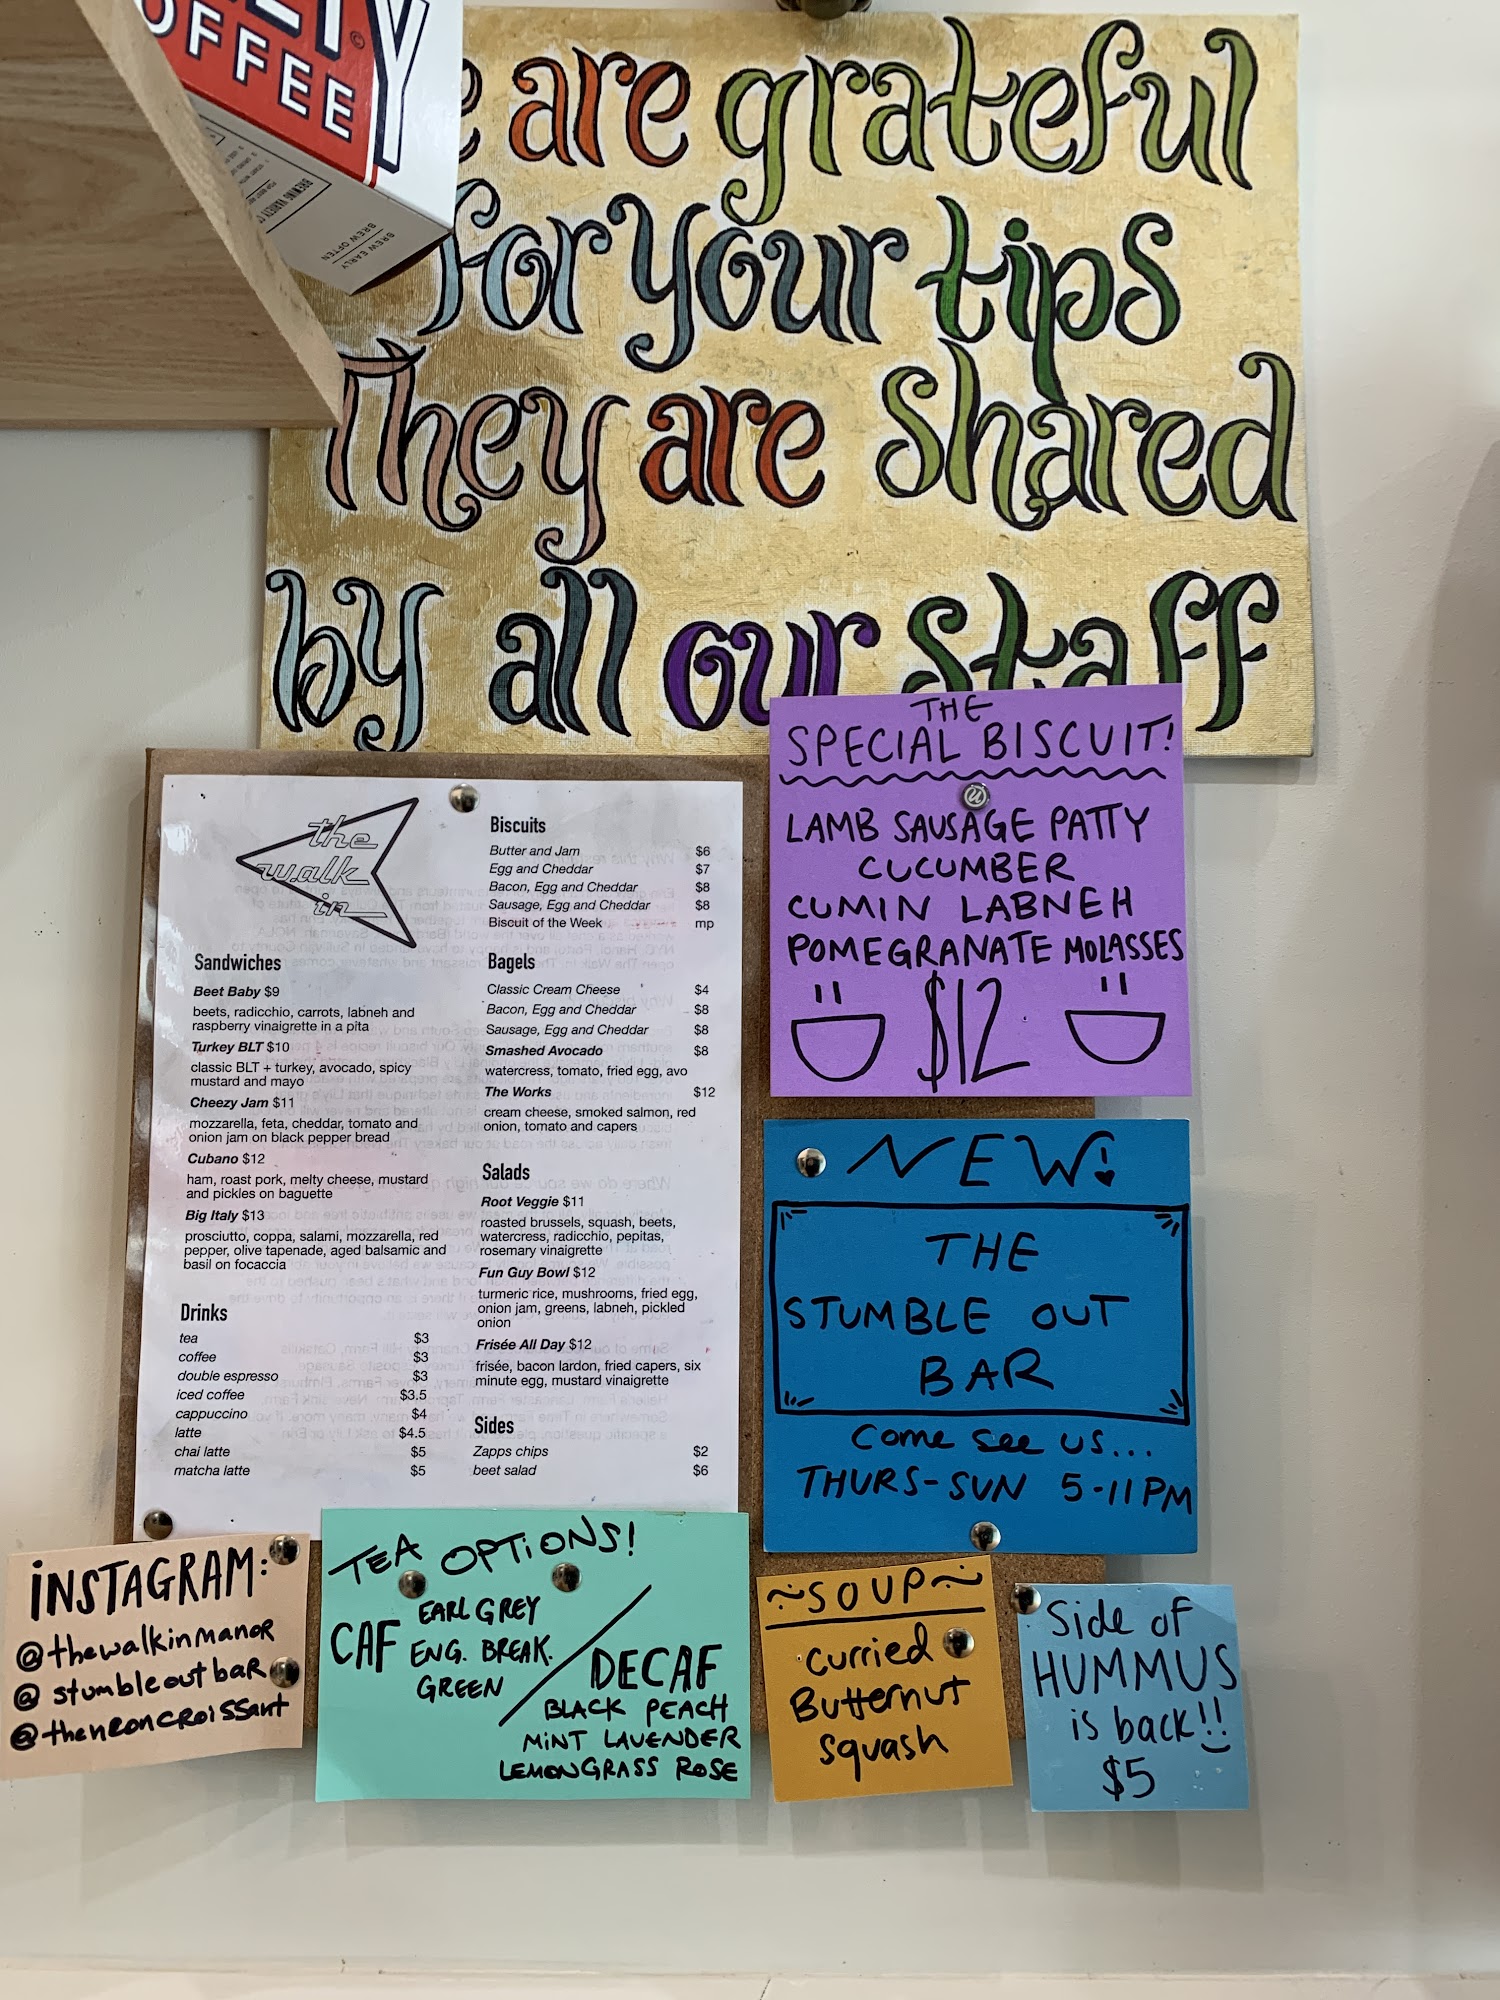 OFFEE
BREWING VARIETY
BREW OFTEN
BREW EARLY
are grateful
for your tips
They are shared
by all our staff
THE
SPECIAL BISCUIT!
LAMB SAUSAGE PATTY
CUCUMBER
CUMIN LABNEH
POMEGRANATE MOLASSES
$12
the
walk
in
Sandwiches
Beet Baby $9
beets, radicchio, carrots, labneh and
raspberry vinaigrette in a pita
Turkey BLT $10
classic BLT + turkey, avocado, spicy
mustard and mayo
Cheezy Jam $11
mozzarella, feta, cheddar, tomato and
onion jam on black pepper bread
Cubano $12
ham, roast pork, melty cheese, mustard
and pickles on baguette
Big Italy $13
prosciutto, coppa, salami, mozzarella, red
pepper, olive tapenade, aged balsamic and
basil on focaccia
Drinks
tea $3
coffee $3
double espresso $3
iced coffee $3.5
cappuccino $4
latte $4.5
chai latte $5
matcha latte $5
Biscuits
Butter and Jam $6
Egg and Cheddar $7
Bacon, Egg and Cheddar $8
Sausage, Egg and Cheddar $8
Biscuit of the Week mp
Bagels
Classic Cream Cheese $4
Bacon, Egg and Cheddar $8
Sausage, Egg and Cheddar $8
Smashed Avocado $8
watercress, tomato, fried egg, avo
The Works $12
cream cheese, smoked salmon, red
onion, tomato and capers
Salads
Root Veggie $11
roasted brussels, squash, beets,
watercress, radicchio, pepitas,
rosemary vinaigrette
Fun Guy Bowl $12
turmeric rice, mushrooms, fried egg,
onion jam, greens, labneh, pickled
onion
Frisée All Day $12
frisée, bacon lardon, fried capers, six
minute egg, mustard vinaigrette
Sides
Zapps chips $2
beet salad $6
NEW!
THE
STUMBLE OUT
BAR
Come see us...
THURS-SUN 5-11PM
INSTAGRAM:
@thewalkinmanor
@stumbleoutbar
@theneoncroissant
TEA OPTIONS!
CAF
EARL GREY
ENG. BREAK.
GREEN
DECAF
BLACK PEACH
MINT LAVENDER
LEMONGRASS ROSE
~SOUP~
Curried
Butternut
Squash
Side of
HUMMUS
is back!!
$5